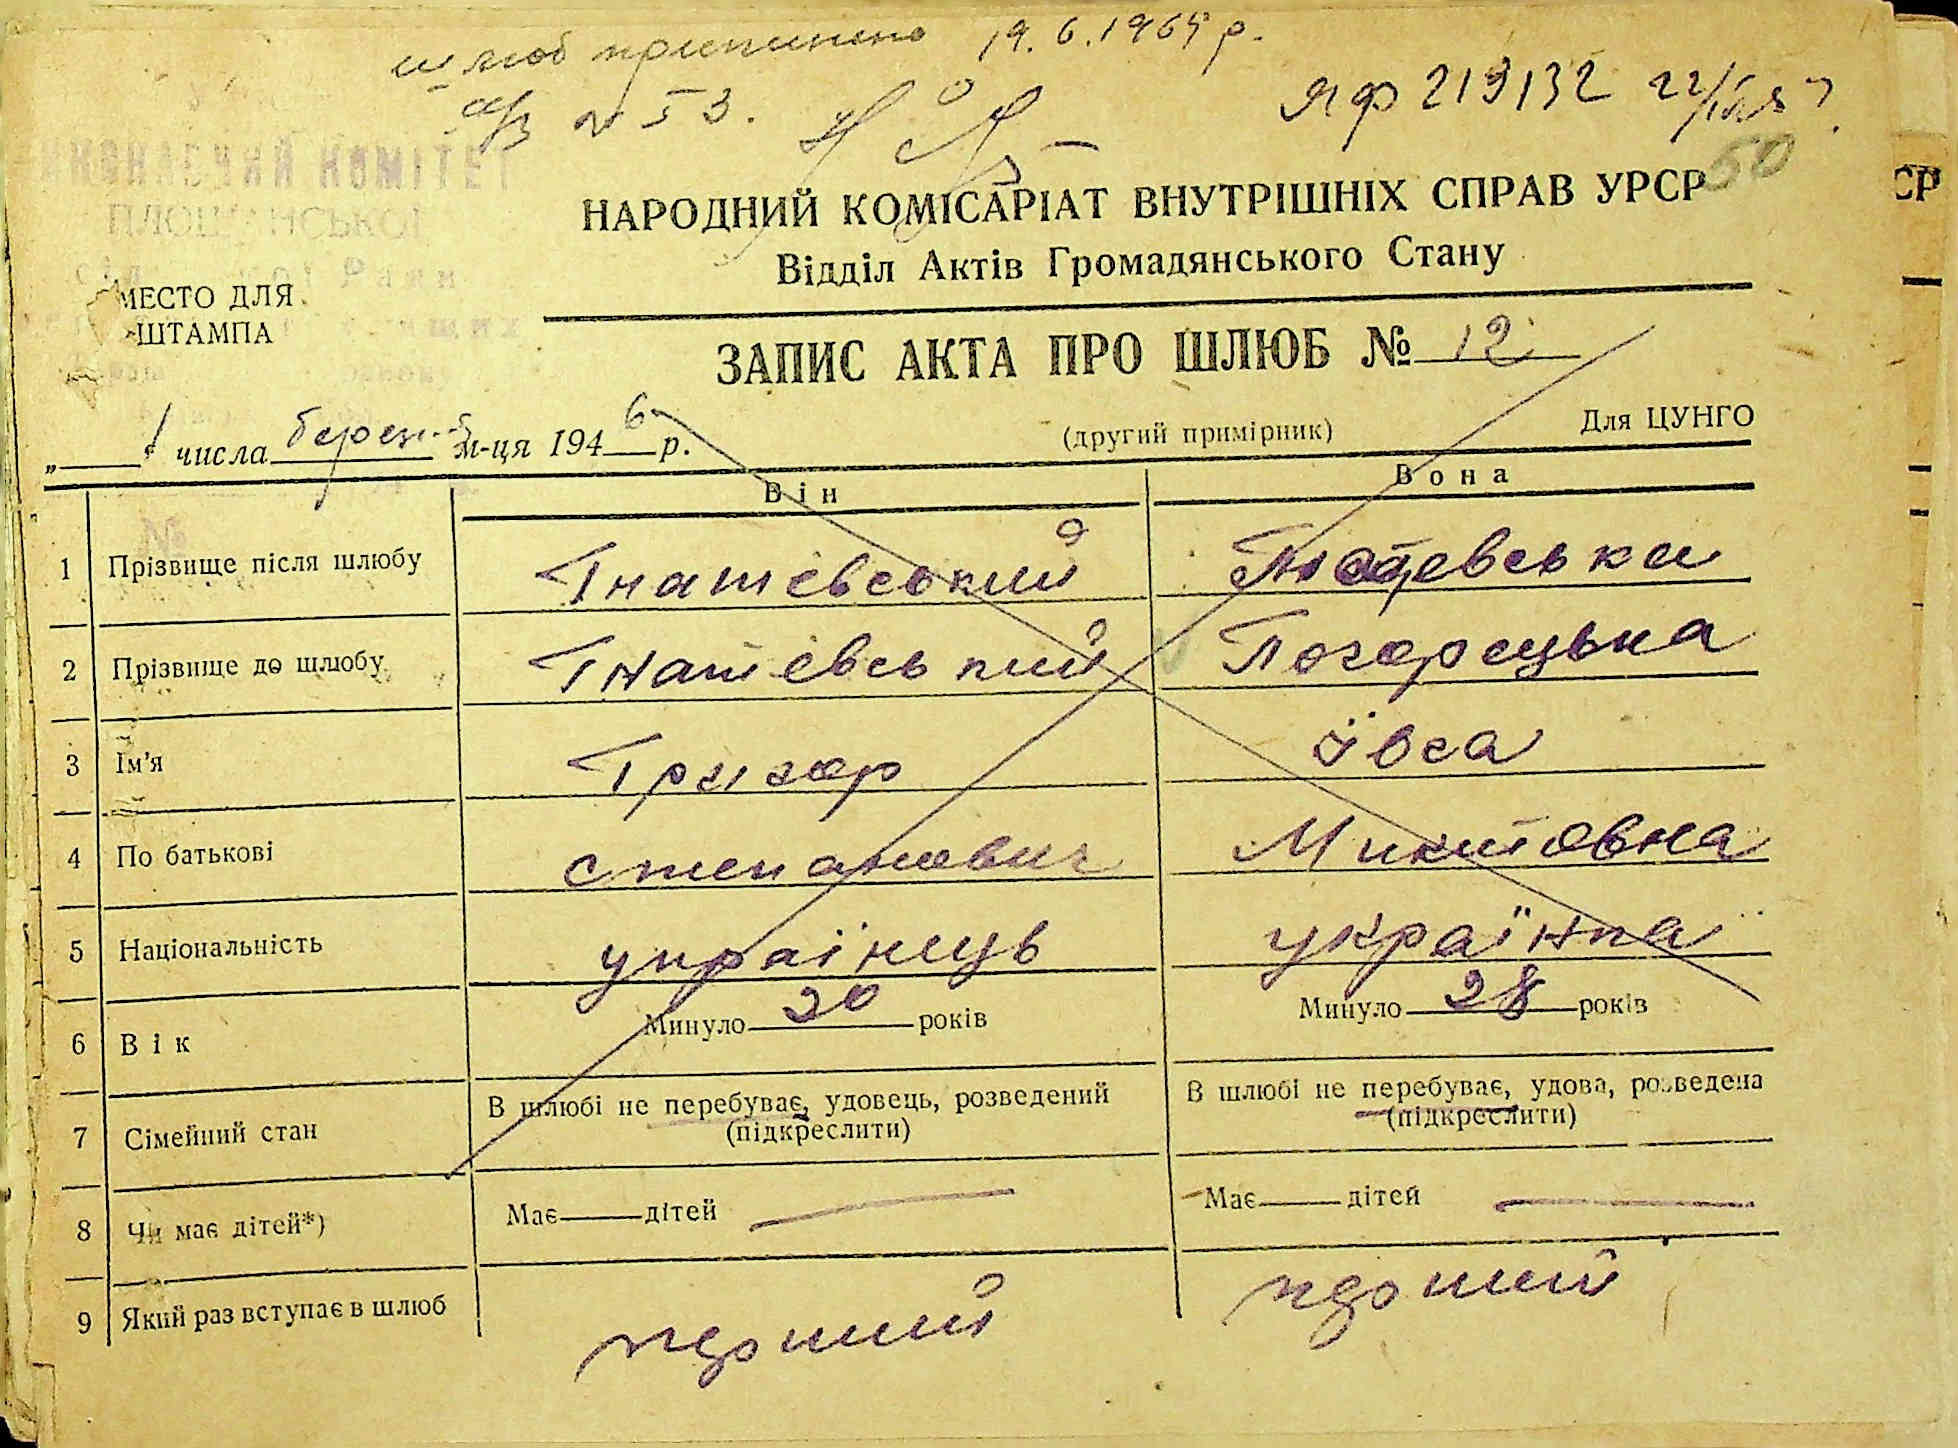 шлюб припинено 19.6.1965 р.
а/з № 53.
ЯФ 219132
50
ВИКОНАВЧИЙ КОМІТЕТ
ПЛОЩАНСЬКОЇ
НАРОДНИЙ КОМІСАРІАТ ВНУТРІШНІХ СПРАВ УРСР
Відділ Актів Громадянського Стану
МЕСТО ДЛЯ
ШТАМПА
ЗАПИС АКТА ПРО ШЛЮБ № 12
„ 1 числа березня м-ця 1946 р.
(другий примірник)
Для ЦУНГО
Він
Вона
1 Прізвище після шлюбу Гнатевський
2 Прізвище до шлюбу Гнатевський Погорецька
3 Ім'я Григор Ївга
4 По батькові Степанович Микитовна
5 Національність українець українка
6 Вік Минуло 20 років Минуло 28 років
7 Сімейний стан В шлюбі не перебуває, удовець, розведений (підкреслити) В шлюбі не перебуває, удова, розведена (підкреслити)
8 Чи має дітей*) Має — дітей — Має — дітей —
9 Який раз вступає в шлюб перший перший
СР